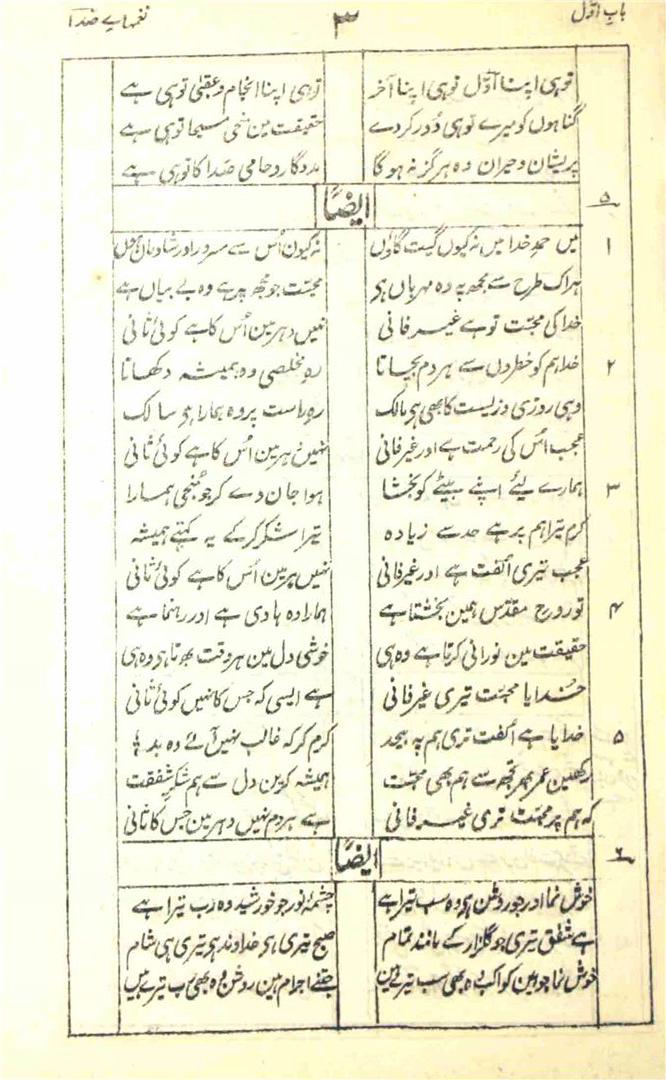 باب اوّل ۳ نغمہائے صدا
توہی اپنا اوّل توہی اپنا آخر توہی اپنا انجام و عقبیٰ توہی ہے
گناہوں کو میرے توہی دُور کر دے حقیقت مین منجی مسیحا توہی ہے
پریشان و حیران وہ ہرگز نہ ہوگا مددگار و حامی صدا کا توہی ہے
۵ ایضاً
۱ میں حمدِ خدا میں نہ کیوں گیت گاؤں نہ کیون اُس سے مسرور اور شادمان ہوں
ہر اک طرح سے مجھ پہ وہ مہرباں ہی محبّت جو مجھ پر ہے وہ بے بیاں ہے
خدا کی محبّت تو ہے غیر فانی نہیں دہر مین اُس کا ہے کوئی ثانی
۲ خدا ہم کو خطروں سے ہر دم بچاتا رہِ مخلصی وہ ہمیشہ دکھاتا
وہی روزی و زیست کا بھی ہی مالک رہِ راست پر وہ ہمارا ہی سالک
عجب اُس کی رحمت ہے اور غیر فانی نہیں دہر مین اُس کا ہے کوئی ثانی
۳ ہمارے لیٔے اپنے بیٹے کو بخشا ہوا جان دے کر جو مُنجی ہمارا
کرم تیرا ہم پر ہے حد سے زیادہ تیرا شکر کر کے یہ کہتے ہمیشہ
عجب تیری اُلفت ہے اور غیر فانی نہیں دہر مین اُس کا ہے کوئی ثانی
۴ تو روحِ مقدّس ہمین بخشتا ہے ہمارا وہ ہادی ہے اور رہنما ہے
حقیقت مین نورانی کرتا ہے وہ ہی خوشی دل مین ہر وقت بھرتا ہی وہ ہی
خُدایا محبّت تیری غیر فانی ہے ایسی کہ جس کا نہیں کوئی ثانی
۵ خدایا ہے اُلفت تری ہم پہ بیحد کرم کر کہ غالب نہیں آئے وہ بد
رکھین عمر بھر تجھ سے ہم بھی محبّت ہمیشہ کرین دل سے ہم شکرِ شفقت
کہ ہم پر محبّت تری غیر فانی ہے ہر دم نہیں دہر مین جس کا ثانی
۶ ایضاً
خوش نما اور جو روشن ہی وہ سب تیرا ہے چشمۂ نور جو خورشید وہ رب تیرا ہے
ہے شفق تیری جو گلزار کے مانند تمام صبح تیری ہی خداوند ہی تیری ہی شام
خوش نما جو ہین کواکب وہ بھی سب تیرے ہین جتنے اجرام ہین روشن وہ بھی سب تیرے ہیں